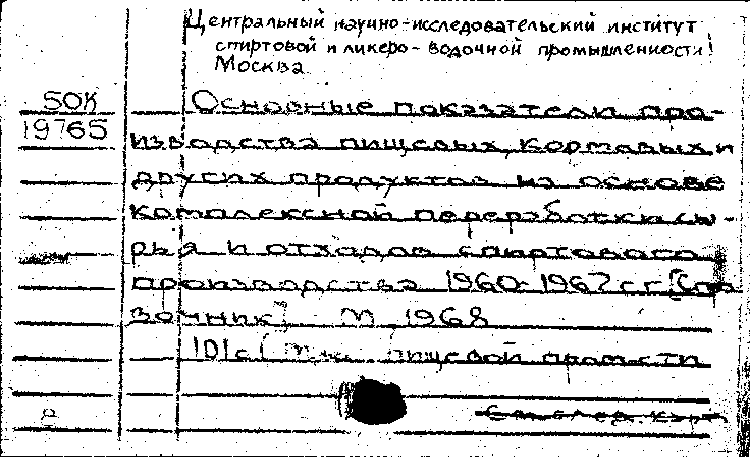 Центральный научно-исследовательский институт
спиртовой и ликеро-водочной промышленности
Москва
50К
19765
Основные показатели про-
изводства пищевых, кормовых и
других продуктов на основе
комплексной переработки сы-
рья и отходов спиртового
производства 1960-1967 гг. [Спра
вочник] М 1968
101 с (М-во пищевой пром-сти
См. след. карт